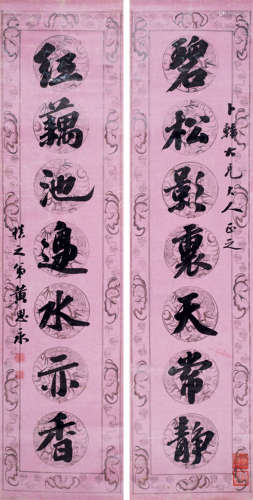 碧松影裏天常靜
卜鏻大兄大人正之
紅藕池邊水亦香
慎之弟黃思永